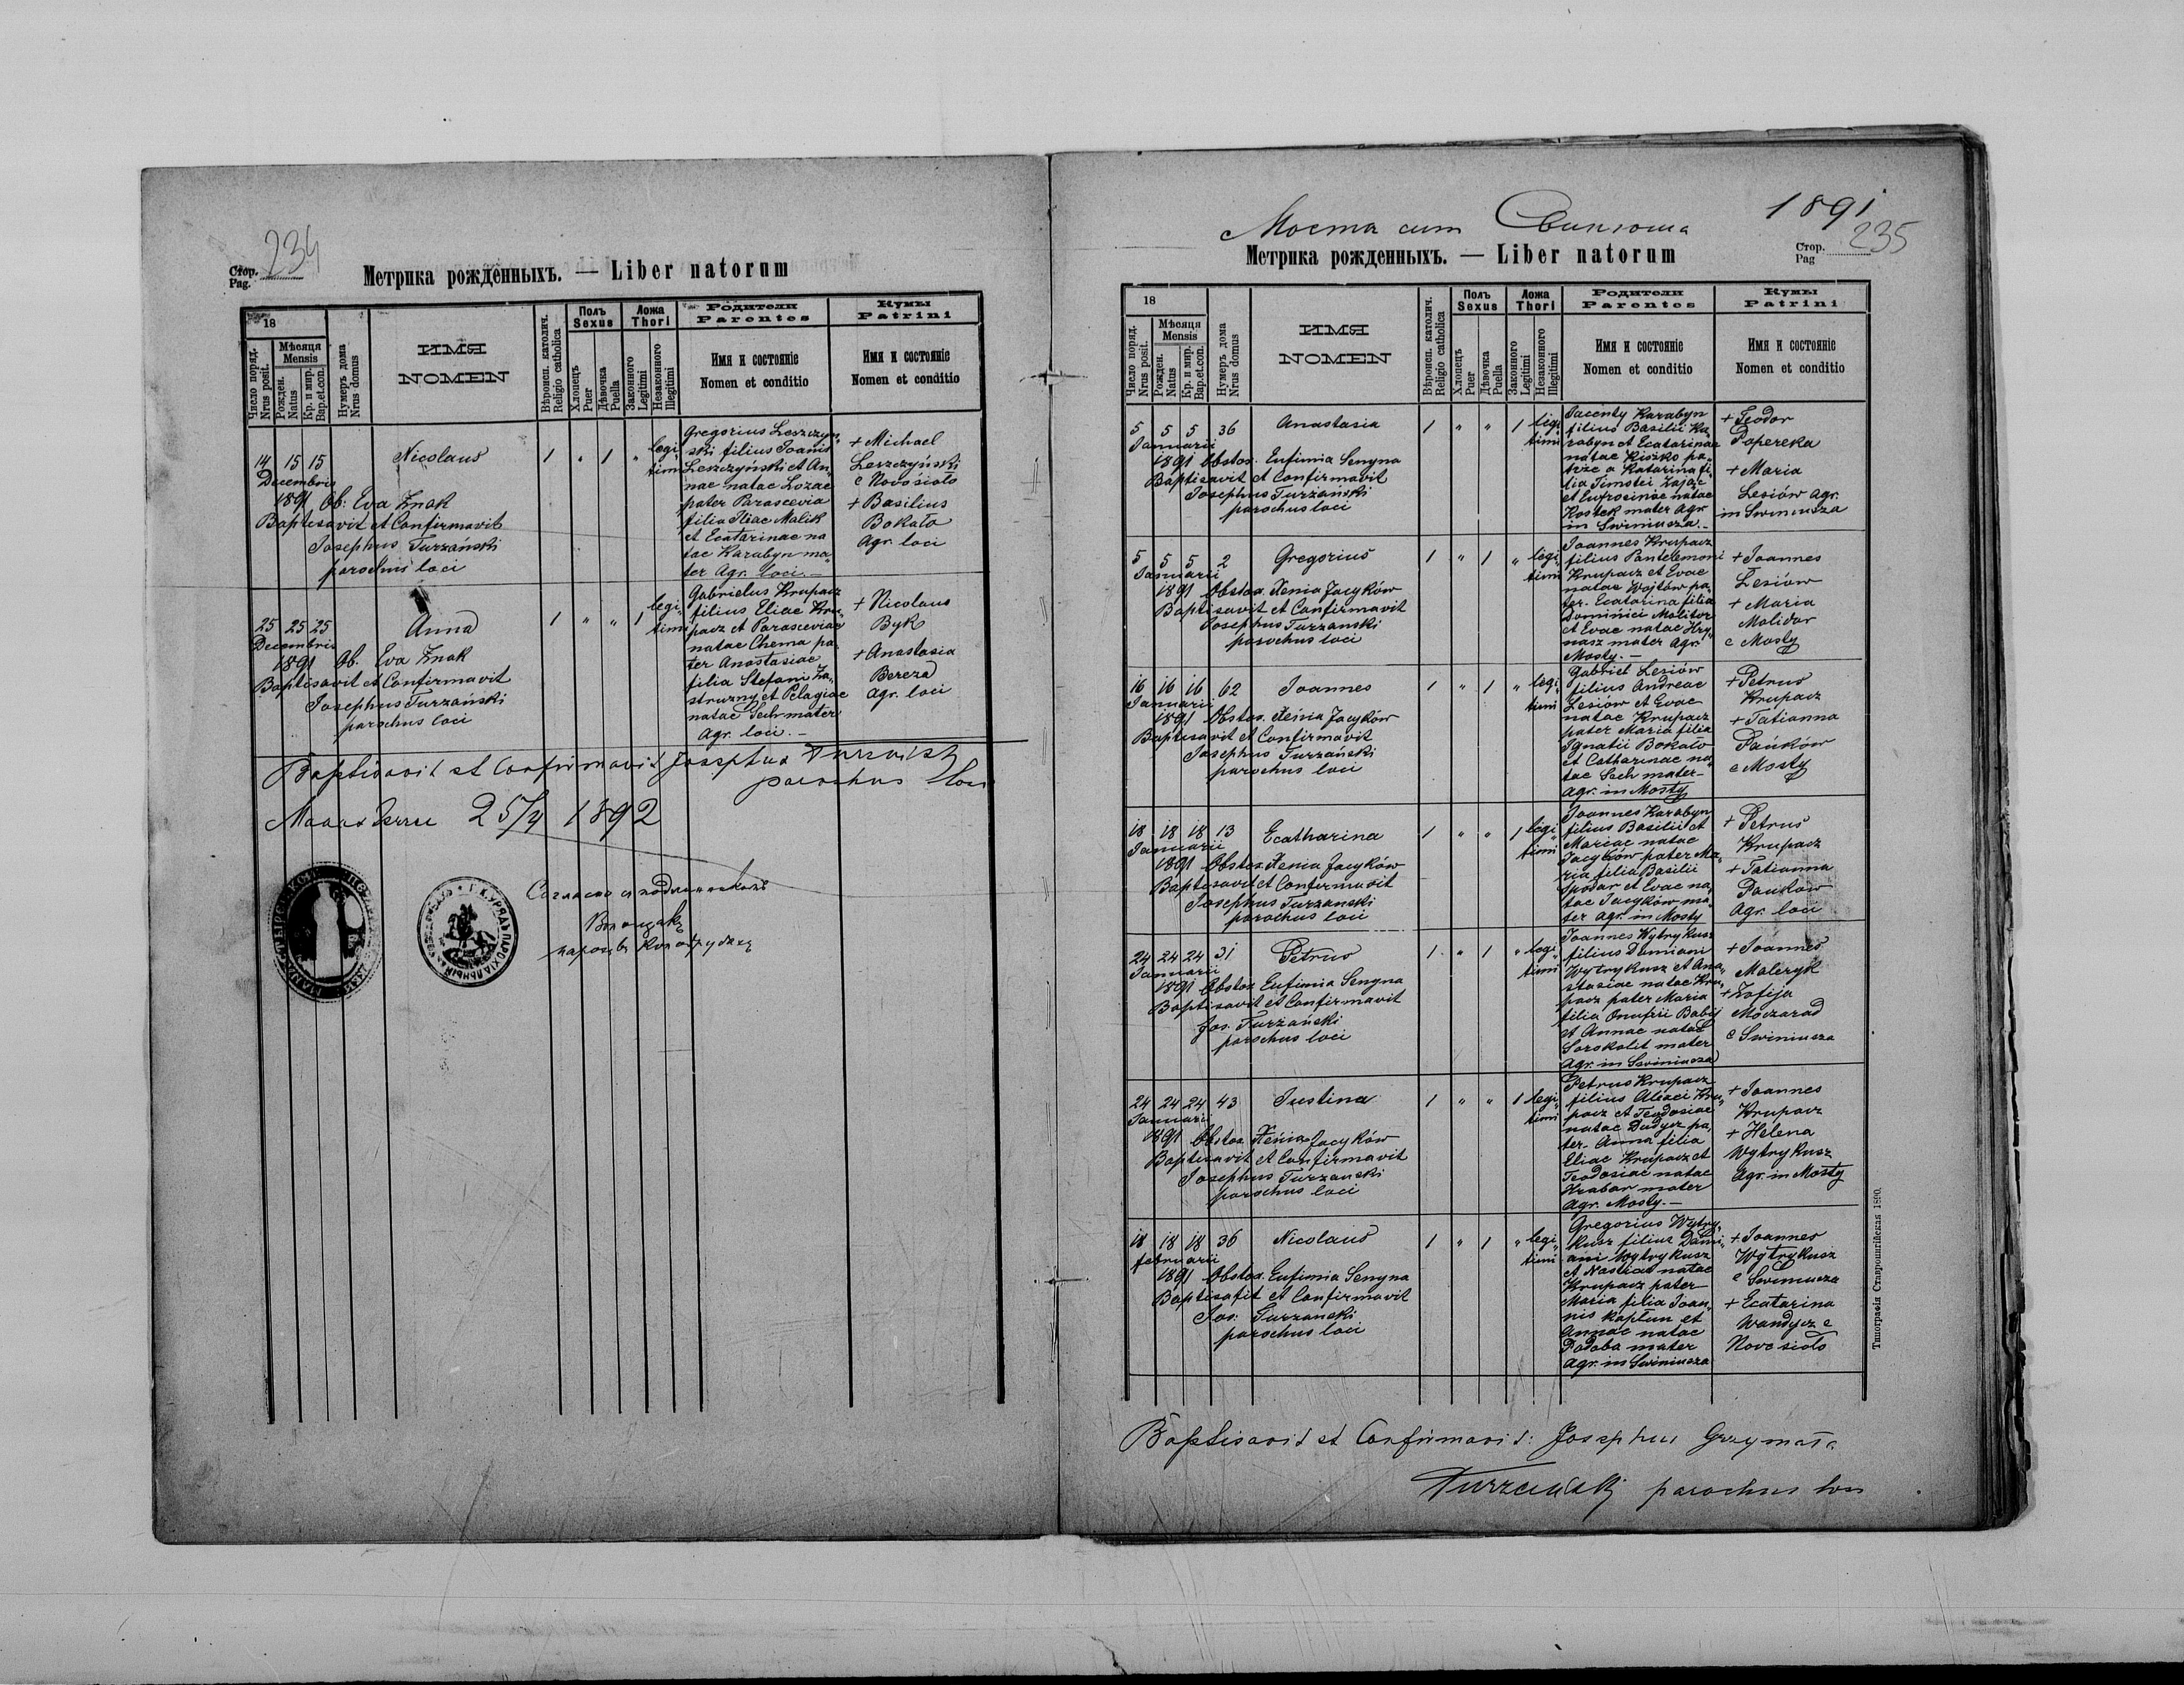 Стор.
Pag. 234
Метрика рожденныхъ. — Liber natorum
18
Число поряд.
Nrus posit.
Мѣсяця
Mensis
Рожден.
Natus
Кр. и мир.
Bap.et.con.
Нумеръ дома
Nrus domus
ИМЯ
NOMEN
Вѣроисп. католич.
Religio catholica
Полъ
Sexus
Хлопецъ
Puer
Дѣвочка
Puella
Ложа
Thori
Законного
Legitimi
Незаконного
Illegitimi
Родители
Parentes
Имя и состояніе
Nomen et conditio
Кумы
Patrini
Имя и состояніе
Nomen et conditio
14 15 15 Nicolaus 1 " 1 " legi
timi
Decembris
1891 Ob: Eva Znak
Baptisavit et Confirmavit
Josephus Turzański
parochus loci
Gregorius Leszczyń
ski filius Joanis
Leszczyński et An
nae natae Lozae
pater Parascevia
filia Iliae Malik
et Ecatarinae na
tae Karabyn ma
ter Agr. loci.—
+ Michael
Leszczyński
e Novosioło
+ Basilius
Bokało
Agr. loci
25 25 25 Anna 1 " " 1 legi
timi
Decembris
1891 Ob. Eva Znak
Baptisavit et Confirmavit
Josephus Turzański
parochus loci
Gabrielus Krupacz
filius Eliae Kru
pacz et Parasceviae
natae Chema pa
ter Anastasiae
filia Stefani Za
struzny et Pelagiae
natae Sech mater
Agr. loci.—
+ Nicolaus
Byk
+ Anastasia
Bereza
agr. loci
Baptisavit et Confirmavit Josephus Turzański
parochus loci
25/4 1892
Согласно съ
парохъ
Моста cum Свинюша 1891
Метрика рожденныхъ. — Liber natorum
Стор.
Pag 235
18
Число поряд.
Nrus posit.
Мѣсяця
Mensis
Рожден.
Natus
Кр. и мир.
Bap.et.con.
Нумеръ дома
Nrus domus
ИМЯ
NOMEN
Вѣроисп. католич.
Religio catholica
Полъ
Sexus
Хлопецъ
Puer
Дѣвочка
Puella
Ложа
Thori
Законного
Legitimi
Незаконного
Illegitimi
Родители
Parentes
Имя и состояніе
Nomen et conditio
Кумы
Patrini
Имя и состояніе
Nomen et conditio
5 5 5 36 Anastasia 1 " " 1 legi
timi
Januarii
1891 Obstos. Eufimia Senyna
Baptisavit et Confirmavit
Josephus Turzański
parochus loci
Jacenty Karabyn
filius Basilii Ka
rabyn et Ecatarinae
natae Kiszko pa
trze a Katarina fi
lia Timotei Zając
et Eufrosinae natae
Kostek mater Agr
in Swiniusza.—
+ Teodor
Popereka
+ Maria
Lesiów agr.
in Swiniusza
5 5 5 2 Gregorius 1 " 1 " legi
timi
Januarii
1891 Obstos. Xenia Jacyków
Baptisavit et Confirmavit
Josephus Turzanski
parochus loci
Joannes Krupacz
filius Pantelemoni
Krupacz et Evae
natae Wojtów pa
ter. Ecatarina filia
Dominici Molitor
et Evae natae Hry
nasz mater Agr.
Mosty.—
+ Joannes
Lesiów
+ Maria
Molidor
e Mosty
16 16 16 62 Joannes 1 " 1 " legi
timi
Januarii
1891 Obstos. Xenia Jacyków
Baptisavit et Confirmavit
Josephus Turzański
parochus loci
Gabriel Lesiów
filius Andreae
Lesiów et Evae
natae Krupacz
pater Maria filia
Ignatii Bokało
et Catharinae na
tae Sech mater—
Agr. in Mosty
+ Petrus
Krupacz
+ Tatianna
Pańków
e Mosty
18 18 18 13 Ecatharina 1 " " 1 legi
timi
Januarii
1891 Obstos. Xenia Jacyków
Baptisavit et Confirmavit
Josephus Turzanski
parochus loci
Joannes Karabyn
filius Basilii et
Mariae natae
Jacyków pater Ma
ria filia Basilii
Spodar et Evae na
tae Jacyków ma
ter agr. in Mosty
+ Petrus
Krupacz
+ Tatianna
Pańków
Agr. loci
24 24 24 31 Petrus 1 " 1 " legi
timi
Januarii
1891 Obstos Eufimia Senyna
Baptisavit et Confirmavit
Jos. Turzański
parochus loci
Joannes Wytrykusz
filius Damiani
Wytrykusz et Ana
stasiae natae Kru
pacz pater Maria
filia Onufrii Babij
et Annae natae
Sorokolit mater
Agr. in Swiniusza
+ Joannes
Maleryk
+ Zofija
Moczarad
e Swiniusza
24 24 24 43 Justina 1 " " 1 legi
timi
Januarii
1891 Obstos. Xenia Jacyków
Baptisavit et Confirmavit
Josephus Turzanski
parochus loci
Petrus Krupacz
filius Alexei Kru
pacz et Teodosiae
natae Dudycz pa
ter- Anna filia
Eliae Krupacz et
Teodosiae natae
Hrabar mater
Agr. Mosty.—
+ Joannes
Krupacz
+ Helena
Wytrykusz
Agr. in Mosty
18 18 18 36 Nicolaus 1 " 1 " legi
timi
februarii
1891 Obstos. Eufimia Senyna
Baptisafit et Confirmavit
Jos. Turzanski
parochus loci
Gregorius Wytry
kusz filius Dami
ani Wytrykusz
et Nastiae natae
Krupacz pater
Maria filia Joan
nis Kapłun et
Annae natae
Podoba mater
agr. in Swiniusza
+ Joannes
Wytrykusz
e Swiniusza
+ Ecatarina
Wandycz e
Novo sioło
Baptisavit et Confirmavit: Josephus Grzymała
Turzański parochus loci
Типографія Ставропигійская 1890.